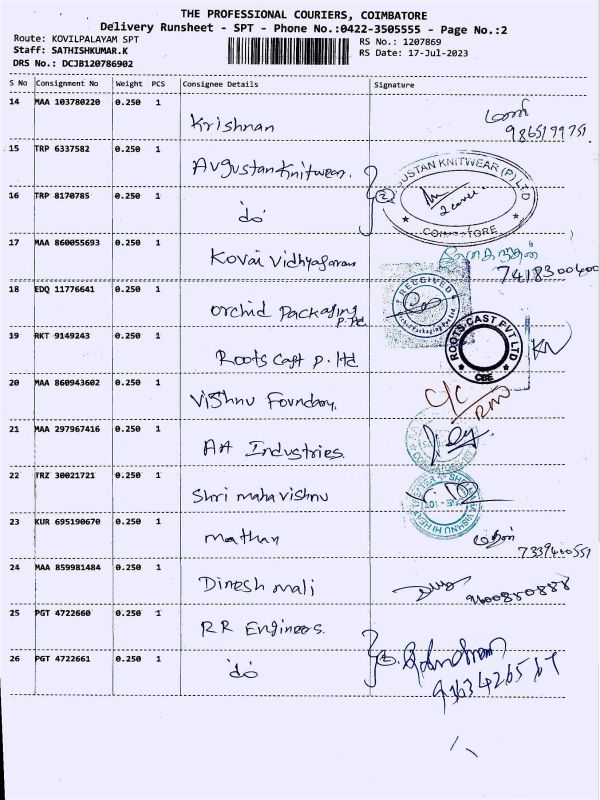 THE PROFESSIONAL COURIERS, COIMBATORE
Delivery Runsheet - SPT - Phone No.:0422-3505555 - Page No.:2
Route: KOVILPALAYAM SPT RS No.: 1207869
Staff: SATHISHKUMAR.K RS Date: 17-Jul-2023
DRS No.: DCJB120786902
S No Consignment No Weight PCS Consignee Details Signature
14 MAA 103780220 0.250 1
Krishnan மணி
9865179751
15 TRP 6337582 0.250 1
Avgustan Knitwear. 2 KNITWEAR (P) LTD
16 TRP 8170785 0.250 1
'do' 2 cover
COIMBATORE
17 MAA 860055693 0.250 1
Kovai Vidhyasram
7418300400
18 EDQ 11776641 0.250 1 RECEIVED
Orchid Packaging
P. ltd
19 RKT 9149243 0.250 1
Roots Cast P. ltd ROOTS CAST PVT LTD
CBE
20 MAA 860943602 0.250 1
Vishnu Foundary. C/C
21 MAA 297967416 0.250 1
AA Industries.
22 TRZ 30021721 0.250 1
Shri maha vishnu
23 KUR 695190670 0.250 1
Mathan மதன்
7339400551
24 MAA 859981484 0.250 1
Dinesh mali 9600880888
25 PGT 4722660 0.250 1
RR Engineers.
26 PGT 4722661 0.250 1 2.
'do'